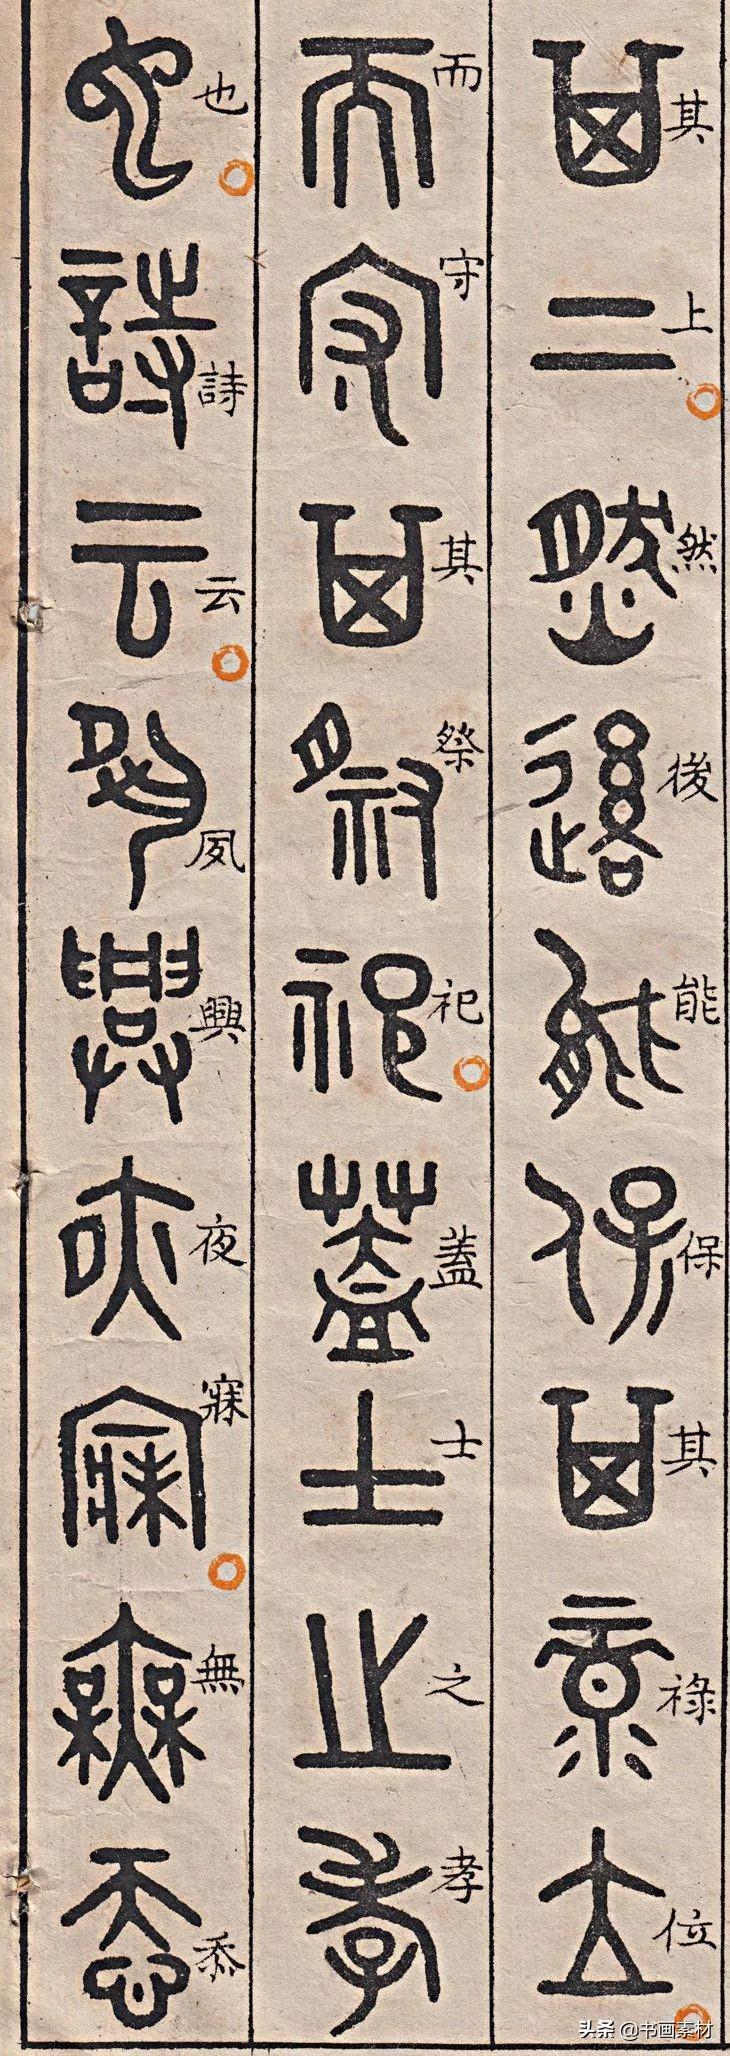 其上然後能保其祿位
而守其祭祀蓋士之孝
也詩云夙興夜寐無忝
头条 @书画素材